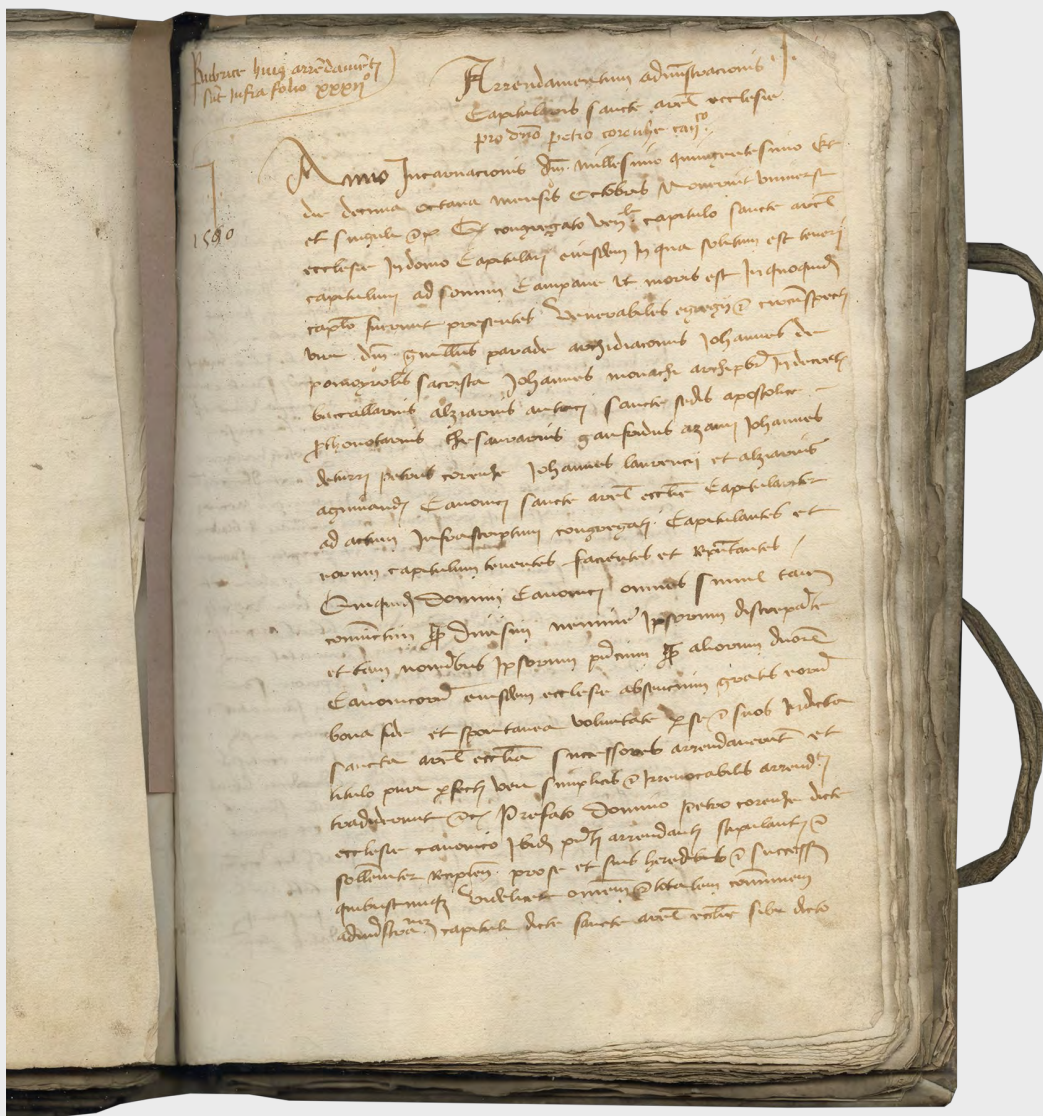 Rubrice huius arrendamenti
sunt infra folio xxxii°
Arrendamentum administracionis
Capitularis sancte arel ecclesie
pro dno petro corenhe canco
I
1500
Anno Incarnacionis dni millesimo quingentesimo Et
die decima octava mensis Octobris Noverint universi
et singuli Et congregato venli capitulo sancte arel
ecclesie In domo Capitulari eiusdem In qua solitum est teneri
capitulum ad sonum Campane ut moris est In quoquid
caplo fuerunt presentes Venerabiles egregii et circunspecti
viri dni guillus parade archidiaconus Johannes de
sacrista Johannes monachi archipbr In decretis
baccallarius alziarius sancte sedis apostolice
prothonotarius thesaurarius gaufridus azami Johannes
deturri petrus corenhe Johannes laurencii et alziarius
Canonici sancte arel ecclie Capitulariter
ad actum Infrascriptum congregati Capitulantes et
eorum capitulum tenentes facientes et reputantes
Quiquid Domini Canonici omnes simul tam
coniunctim qp Divisim nemine Ipsorum discrepante
et tam nominibus Ipsorum qp aliorum dnorum
Canonicorum eiusdem ecclesie absencium gratis eorum
bona fide et spontanea voluntate p se et suos In dicta
sancta arel ecclia successores arrendaverunt et
titulo puri pfecti veri simplicis et Irrevocabilis arrendti
tradiderunt Prefato Domino petro corenhe dicte
ecclesie canonico Ibid arrendanti stipulanti et
sollemniter recipien pro se et suis heredibus et successor
quibuscunq Videlicet omnem et totalem communem
capituli dicte sancte arel ecclie sibi dicto